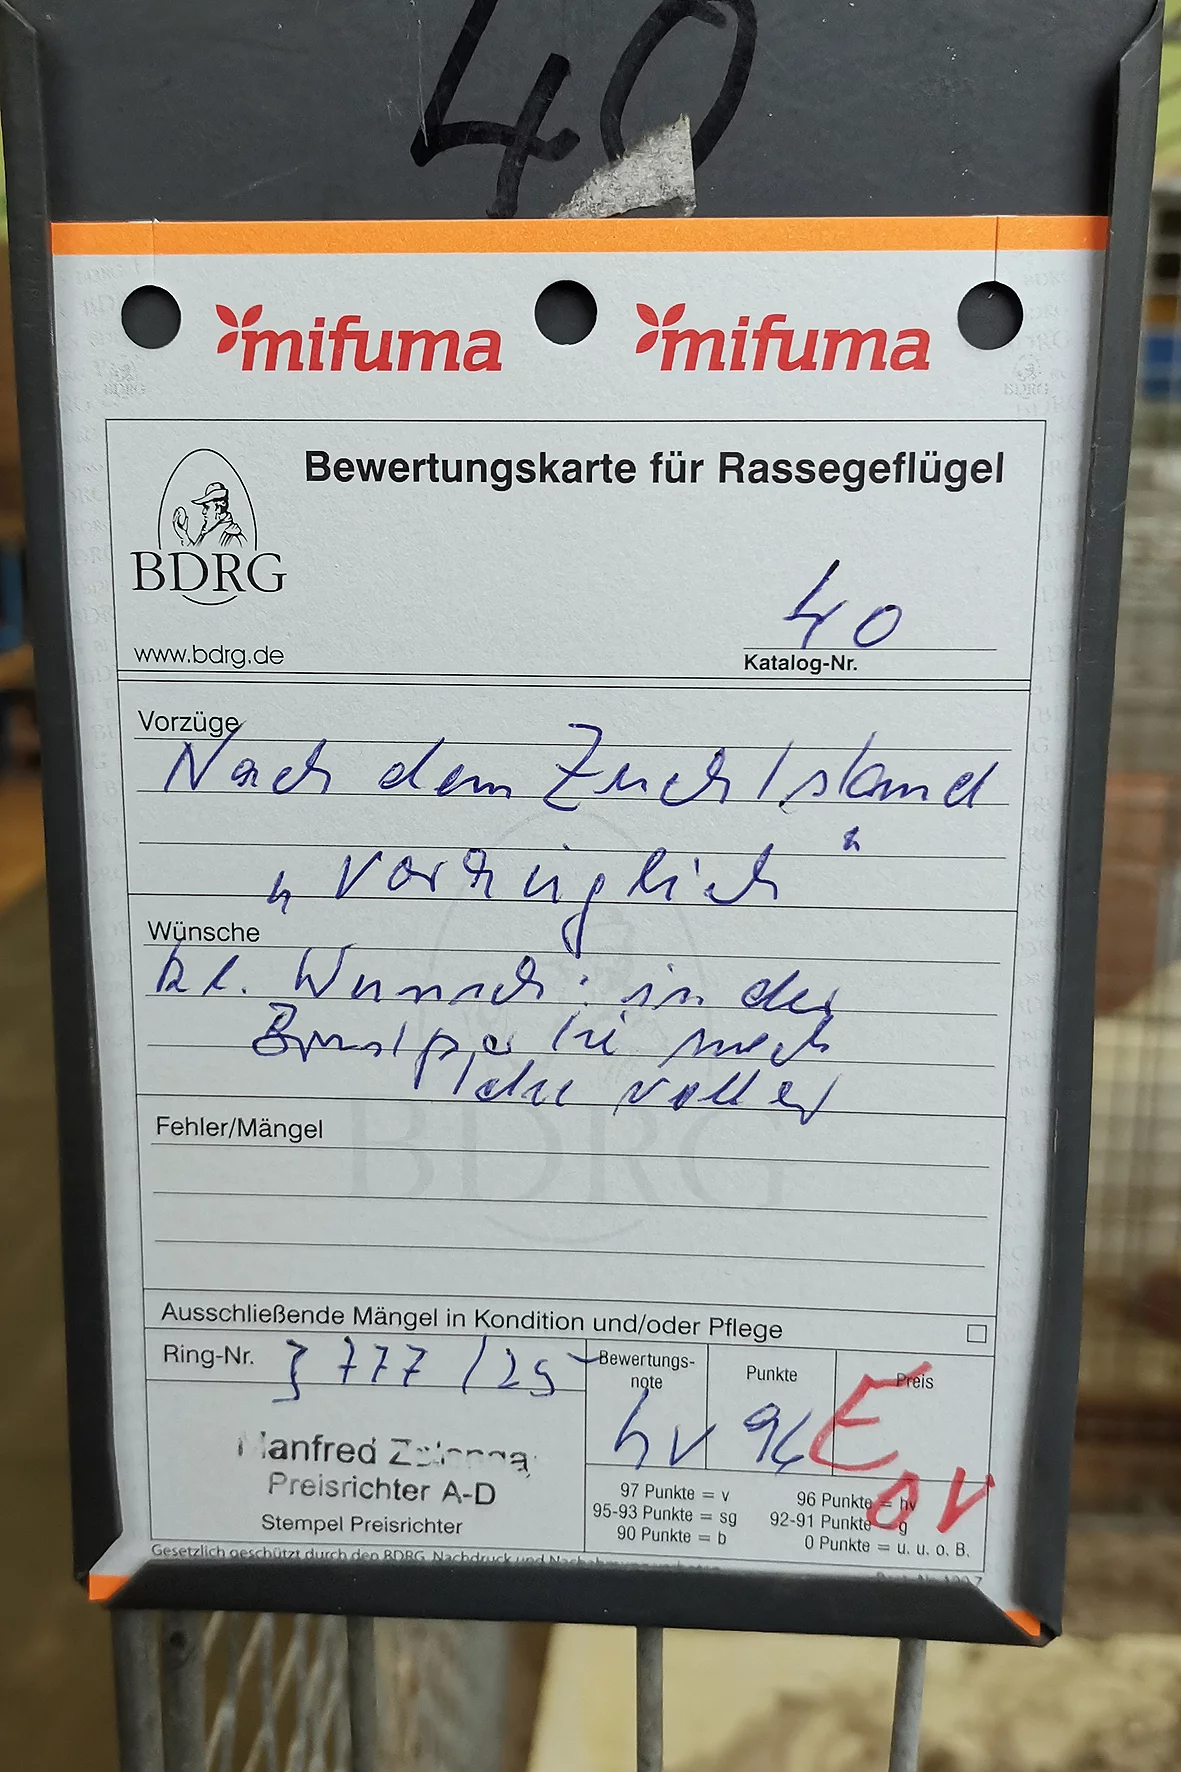 40
mifuma mifuma
Bewertungskarte für Rassegeflügel
BDRG
www.bdrg.de
40
Katalog-Nr.
Vorzüge
Nach dem Zuchtstand
"vorzüglich"
Wünsche
kl. Wunsch: in der
Brustpartie noch
voller
Fehler/Mängel
BDRG
Ausschließende Mängel in Kondition und/oder Pflege
Ring-Nr. 777/25
Bewertungs-
note
hv
Punkte
96
Preis
E
oV
Manfred
Preisrichter A-D
Stempel Preisrichter
97 Punkte = v 96 Punkte = hv
95-93 Punkte = sg 92-91 Punkte = g
90 Punkte = b 0 Punkte = u. u. o. B.
Gesetzlich geschützt durch den BDRG, Nachdruck und